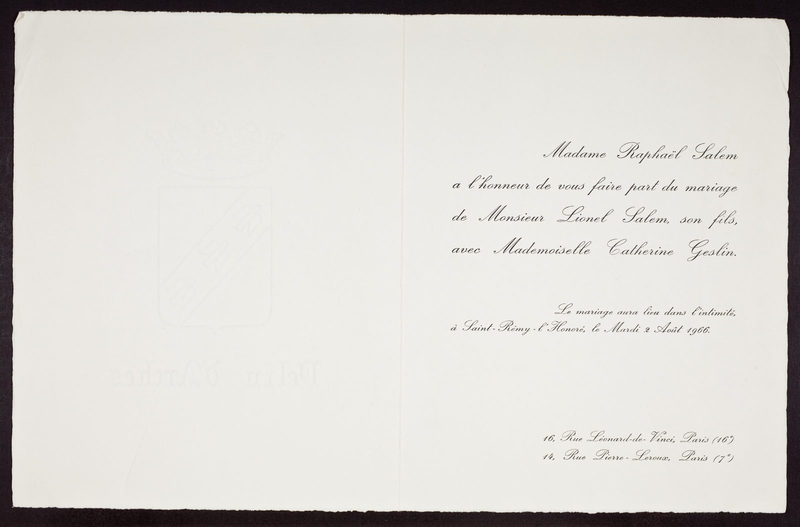 Madame Raphaël Salem
a l'honneur de vous faire part du mariage
de Monsieur Lionel Salem, son fils,
avec Mademoiselle Catherine Geslin.
Le mariage aura lieu dans l'intimité,
à Saint-Rémy-l'Honoré, le Mardi 2 Août 1966.
16, Rue Léonard-de-Vinci, Paris (16e)
14, Rue Pierre-Leroux, Paris (7e)
Velin d'Arches